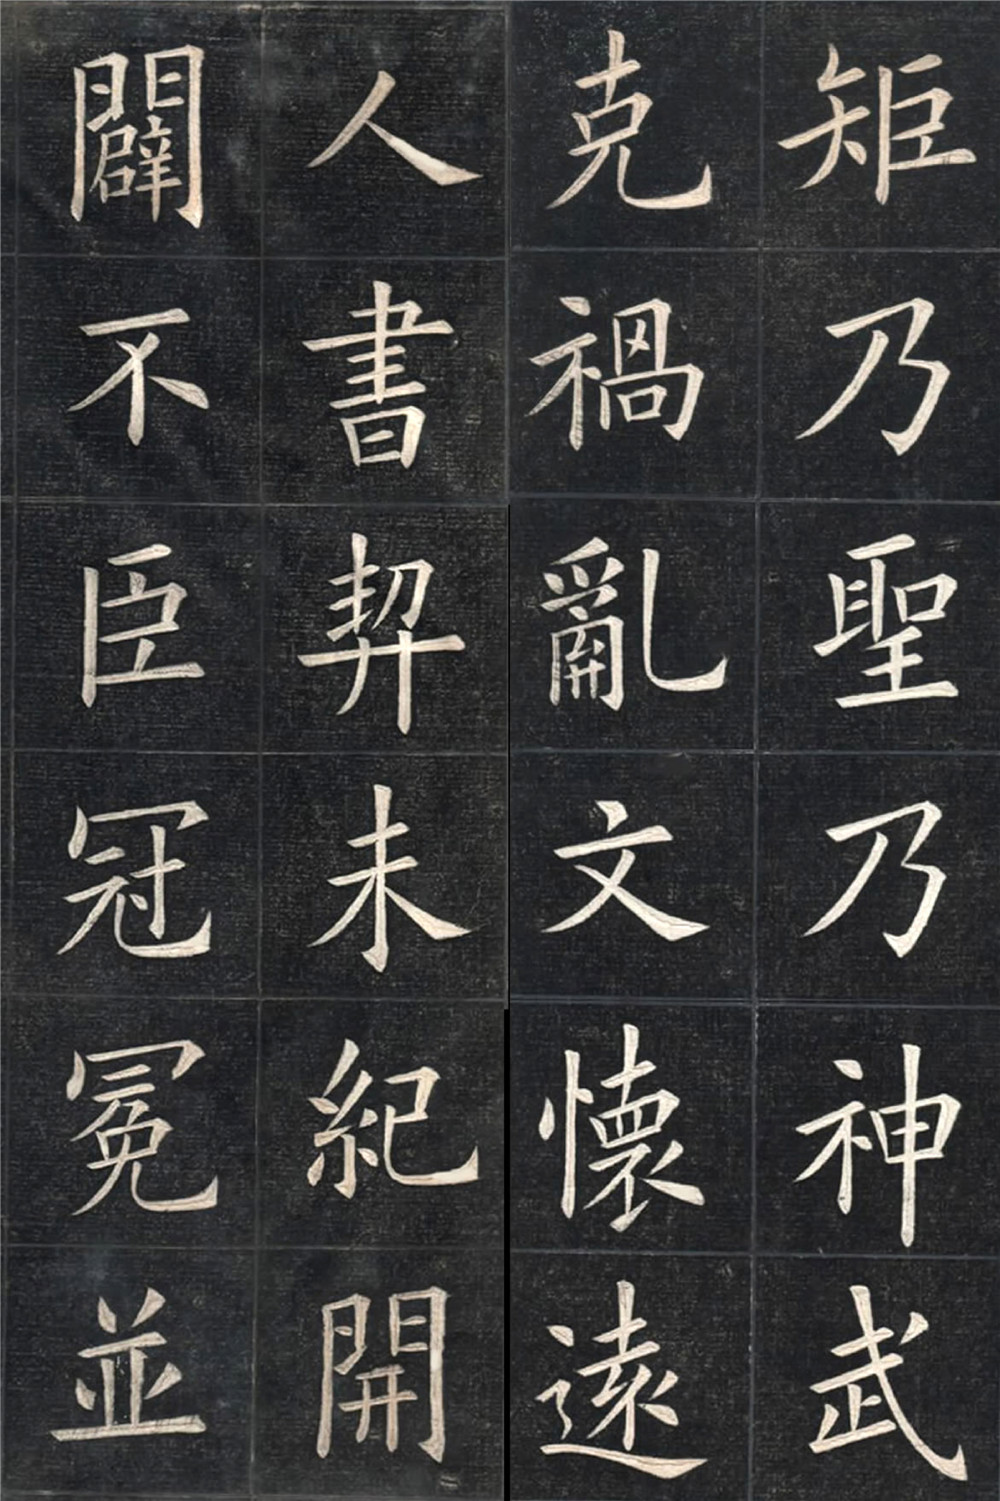 矩乃聖乃神武
克禍亂文懷遠
人書契未紀開
闢不臣冠冕並